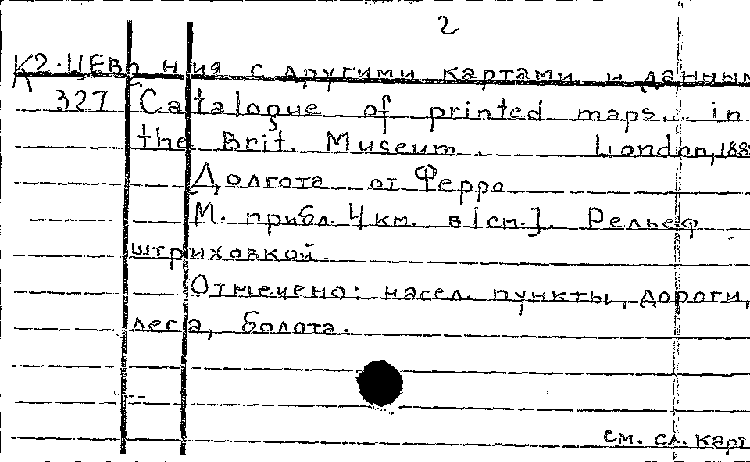 2
К2-Цев ния с другими картами и данным
Л 327 Catalogue of printed maps.. in
the Brit. Museum. London, 188
Долгота от Ферро
М. прибл. 4 км. в 1 см.]. Рельеф
штриховкой
Отмечено: насел. пункты, дороги,
леса, болота.
см. сл. карт